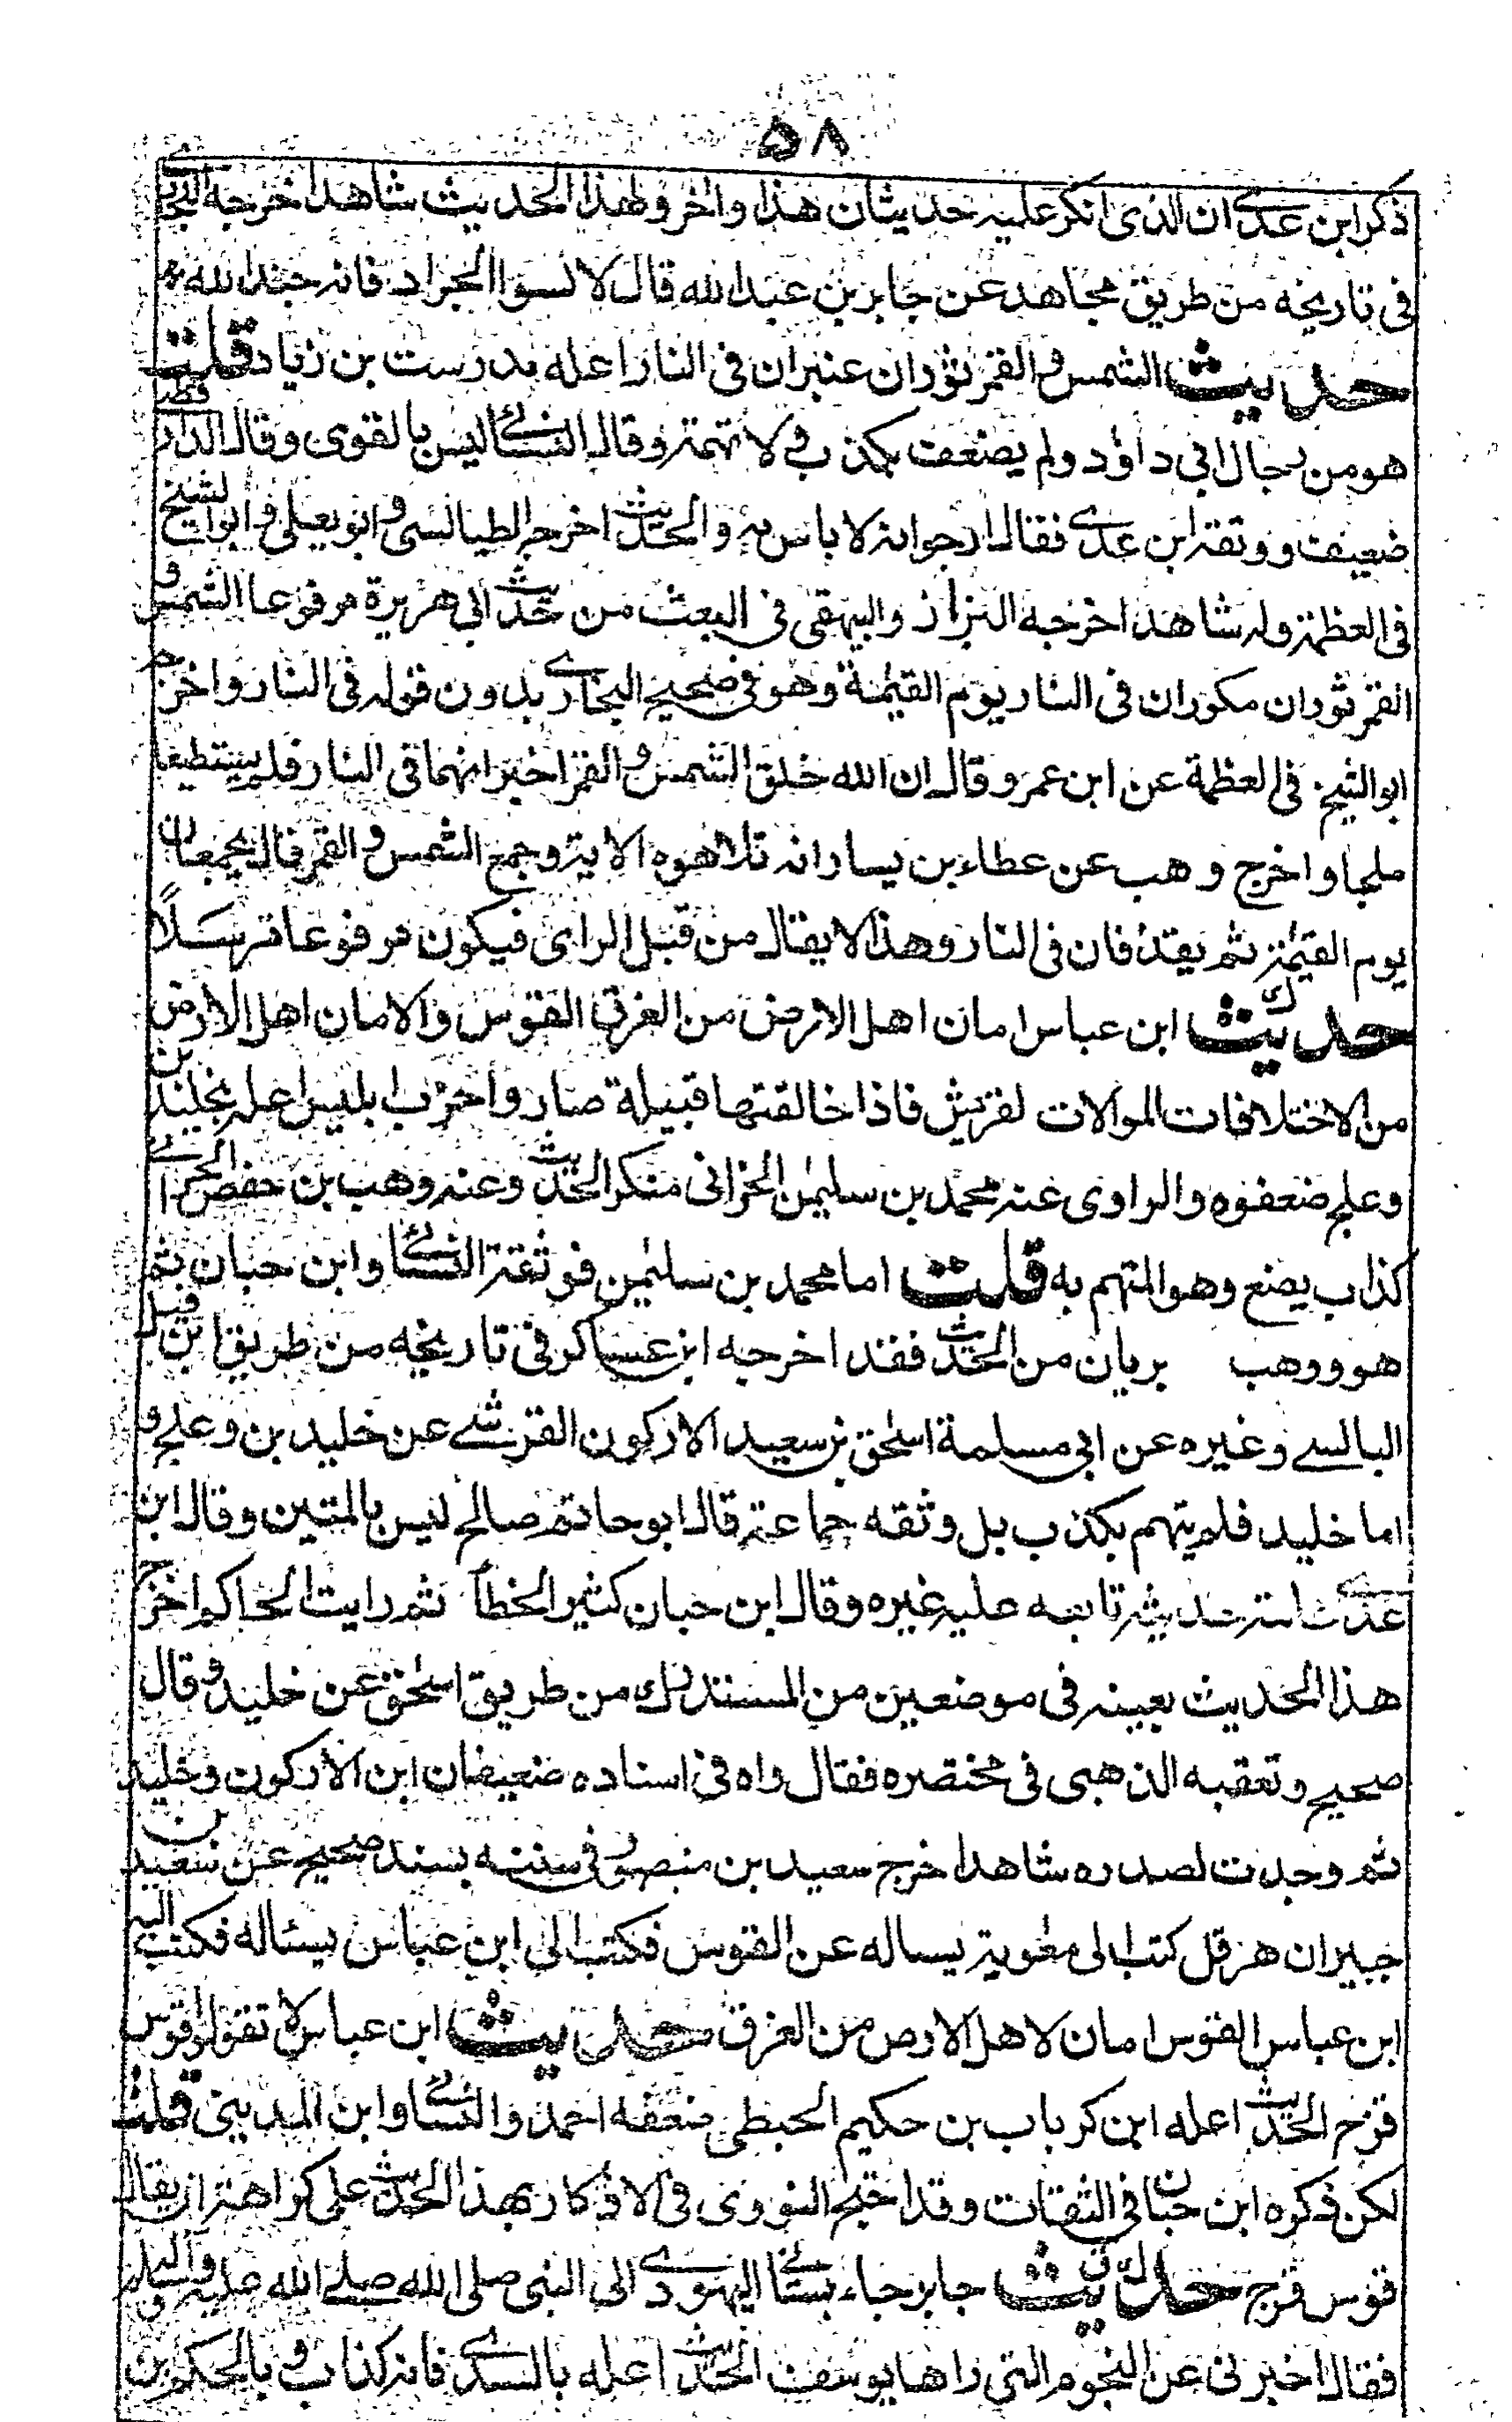 ٥٨
ذكر ابن عدى ان الذى انكر عليه حديثان هذا واخر ولهذا الحديث شاهد اخرجه
فى تاريخه من طريق مجاهد عن جابر بن عبد الله قال لا تسبوا الجراد فانه جند الله
حديث الشمس و القمر ثوران عنبران فى النار اعله بدرست بن زياد قلت
هو من رجال ابى داؤد ولم يضعف بكذب و لا تهمة وقال النسائى ليس بالقوى وقال الدار قطنى
ضعيف ووثقه ابن عدى فقال ارجوانه لا باس به والحديث اخرجه الطيالسى و ابو يعلى و ابو الشيخ
فى العظمة وله شاهد اخرجه البزار والبيهقى فى البعث من حديث ابى هريرة مرفوعا الشمس و
القمر ثوران مكوران فى النار يوم القيٰمة وهو فى صحيح البخارى بدون قوله فى النار واخرج
ابو الشيخ فى العظمة عن ابن عمر و قال ان الله خلق الشمس و القمر اخبر انهما فى النار فلم يستطيعا
ملجا واخرج وهب عن عطاء بن يسار انه تلا هذه الاية وجمع الشمس و القمر قال يجمعان
يوم القيٰمة ثم يقذفان فى النار وهذا لا يقال من قبل الراى فيكون مرفوعا مرسلًا
حديث ابن عباس امان اهل الارض من الغرق القوس والامان اهل الارض
من الاختلافات الموالات لقريش فاذا خالفتها قبيلة صاروا حزب ابليس اعله بخليد بن
دعلج ضعفوه والراوى عنه محمد بن سليمٰن الحرانى منكر الحديث وعنه وهب بن حفص الحرانى
كذاب يضع وهو المتهم به قلت اما محمد بن سليمٰن فوثقة النسائى وابن حبان ثم
هو ووهب بريان من الحديث فقد اخرجه ابن عساكر فى تاريخه من طريق ابن قيل
البالسى وغيره عن ابى مسلمة اسحٰق بن سعيد الاركون القرشى عن خليد بن دعلج و
اما خليد فلم يتهم بكذب بل وثقه جماعة قال ابو حاتم صالح ليس بالمتين وقال ابن
عدى عامة حديثه تابعه عليه غيره وقال ابن حبان كثير الخطأ ثم رايت الحاكم اخرج
هذا الحديث بعينه فى موضعين من المستدرك من طريق اسحٰق عن خليد و قال
صحيح وتعقبه الذهبى فى مختصره فقال واه فى اسناده ضعيفان ابن الاركون وخليد
ثم وجدت لصدره شاهدا خرج سعيد بن منصور فى سننه بسند صحيح عن سعيد بن
جبير ان هرقل كتب الى معٰوية يساله عن القوس فكتب الى ابن عباس يسئاله فكتب اليه
ابن عباس القوس امان لاهل الارض من الغرق حديث ابن عباس لا تقولوا قوس
قزح الحديث اعله ابن كر باب بن حكيم الحبطى ضعفه احمد والنسائى وابن المدينى قلت
لكن ذكره ابن حبان فى الثقات وقد احتج النووى فى الاذكار بهذا الحديث على كراهة ان يقال
قوس قزح حديث جابر جاء بستانى اليهودى الى النبى صلى الله صلى الله عليه واله وسلم
فقال اخبرنى عن النجوم التى راها يوسف الحديث اعله بالسدى فانه كذاب و بالحكم بن